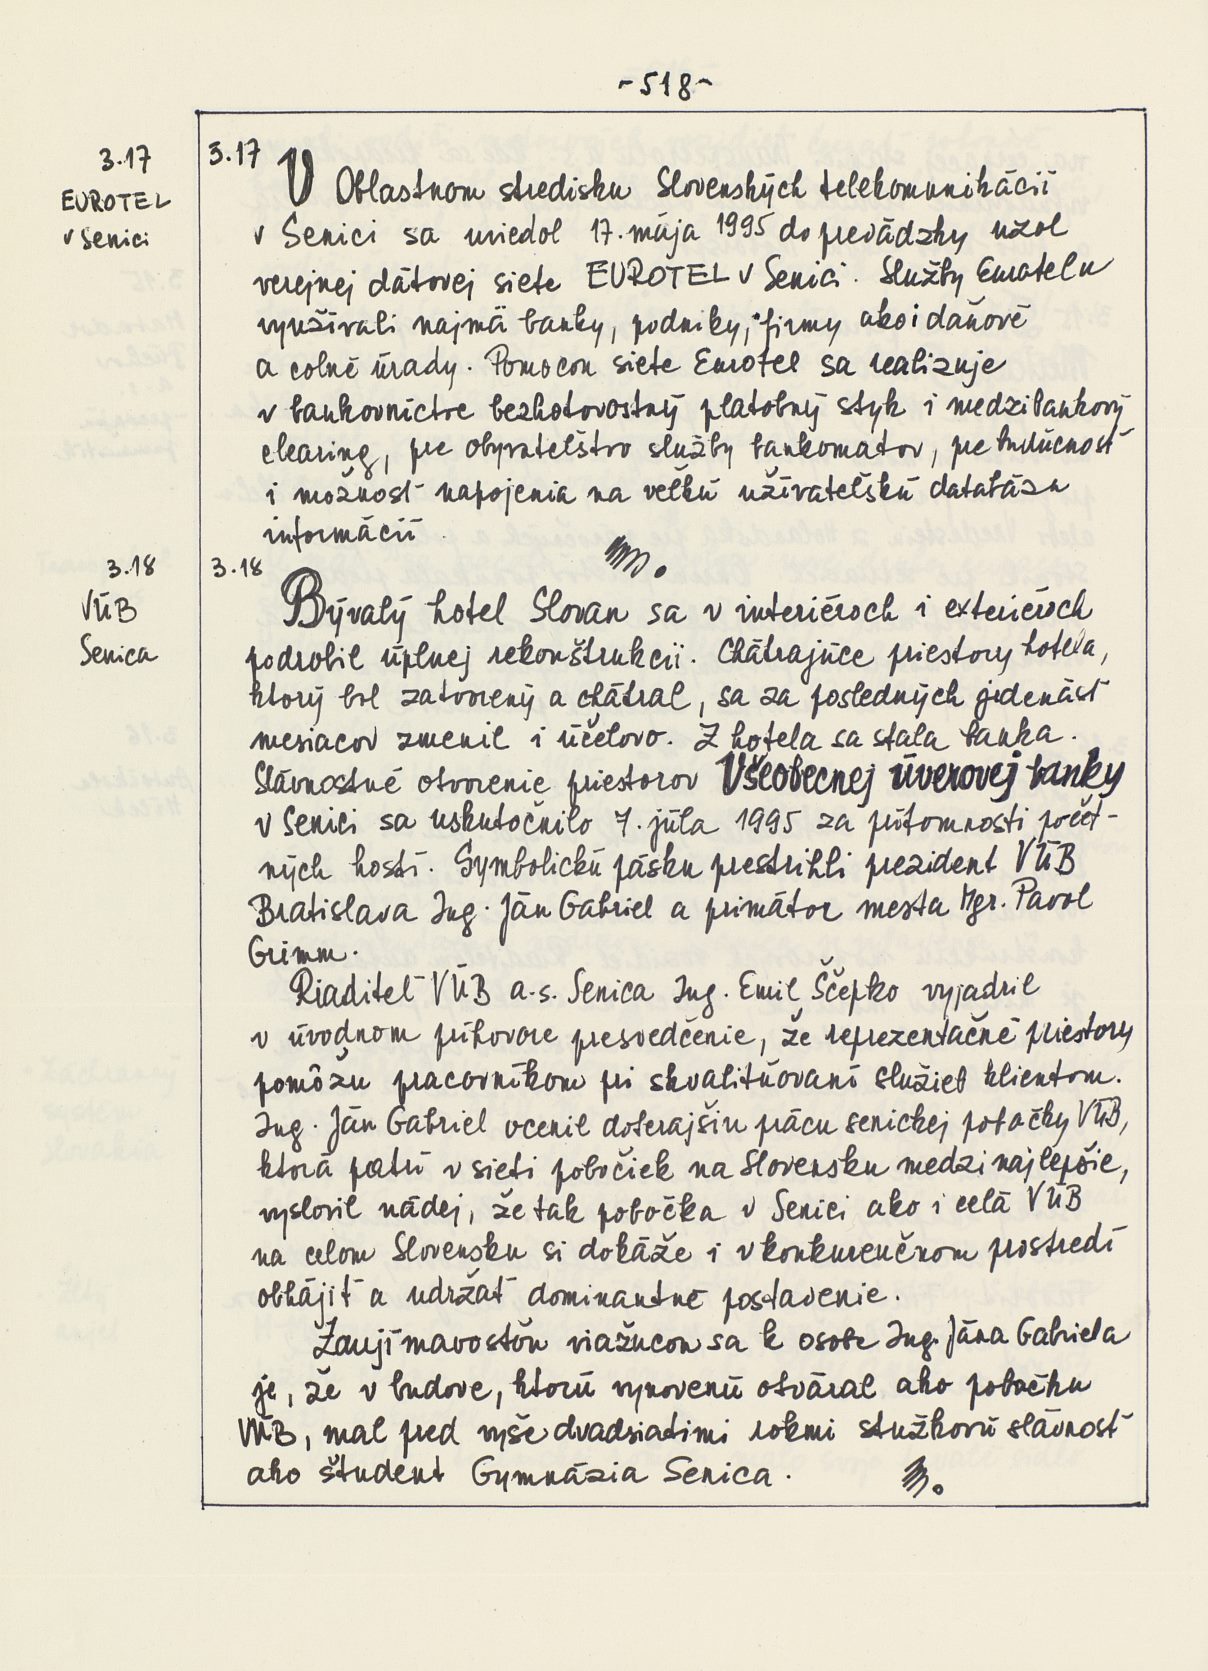 ~518~
3.17
EUROTEL
v Senici
3.17
V Oblastnom stredisku Slovenských telekomunikácií
v Senici sa uviedol 17. mája 1995 do prevádzky uzol
verejnej dátovej siete EUROTEL v Senici. Služby Eurotelu
využívali najmä banky, podniky, firmy ako i daňové
a colné úrady. Pomocou siete Eurotel sa realizuje
v bankovníctve bezhotovostný platobný styk i medzibankový
clearing, pre obyvateľstvo služby bankomatov, pre budúcnosť
i možnosť napojenia na veľkú užívateľskú databázu
informácií.
3.18
VÚB
Senica
3.18
Bývalý hotel Slovan sa v interiéroch i exteriéroch
podrobil úplnej rekonštrukcii. Chátrajúce priestory hotela,
ktorý bol zatvorený a chátral, sa za posledných jedenásť
mesiacov zmenil i účelovo. Z hotela sa stala banka.
Slávnostné otvorenie priestorov Všeobecnej úverovej banky
v Senici sa uskutočnilo 7. júla 1995 za prítomnosti počet-
ných hostí. Symbolickú pásku prestrihli prezident VÚB
Bratislava Ing. Ján Gabriel a primátor mesta Mgr. Pavol
Grimm.
Riaditeľ VÚB a.s. Senica Ing. Emil Ščepko vyjadril
v úvodnom príhovore presvedčenie, že reprezentačné priestory
pomôžu pracovníkom pri skvalitňovaní služieb klientom.
Ing. Ján Gabriel ocenil doterajšiu prácu senickej pobačky VÚB,
ktorá patrí v sieti pobočiek na Slovensku medzi najlepšie,
vyslovil nádej, že tak pobočka v Senici ako i celá VÚB
na celom Slovensku si dokáže i v konkurenčnom prostredí
obhájiť a udržať dominantné postavenie.
Zaujímavosťou viažucou sa k osobe Ing. Jána Gabriela
je, že v budove, ktorú vynovenú otváral ako pobočku
VÚB, mal pred vyše dvadsiatimi rokmi stužkovú slávnosť
ako študent Gymnázia Senica.